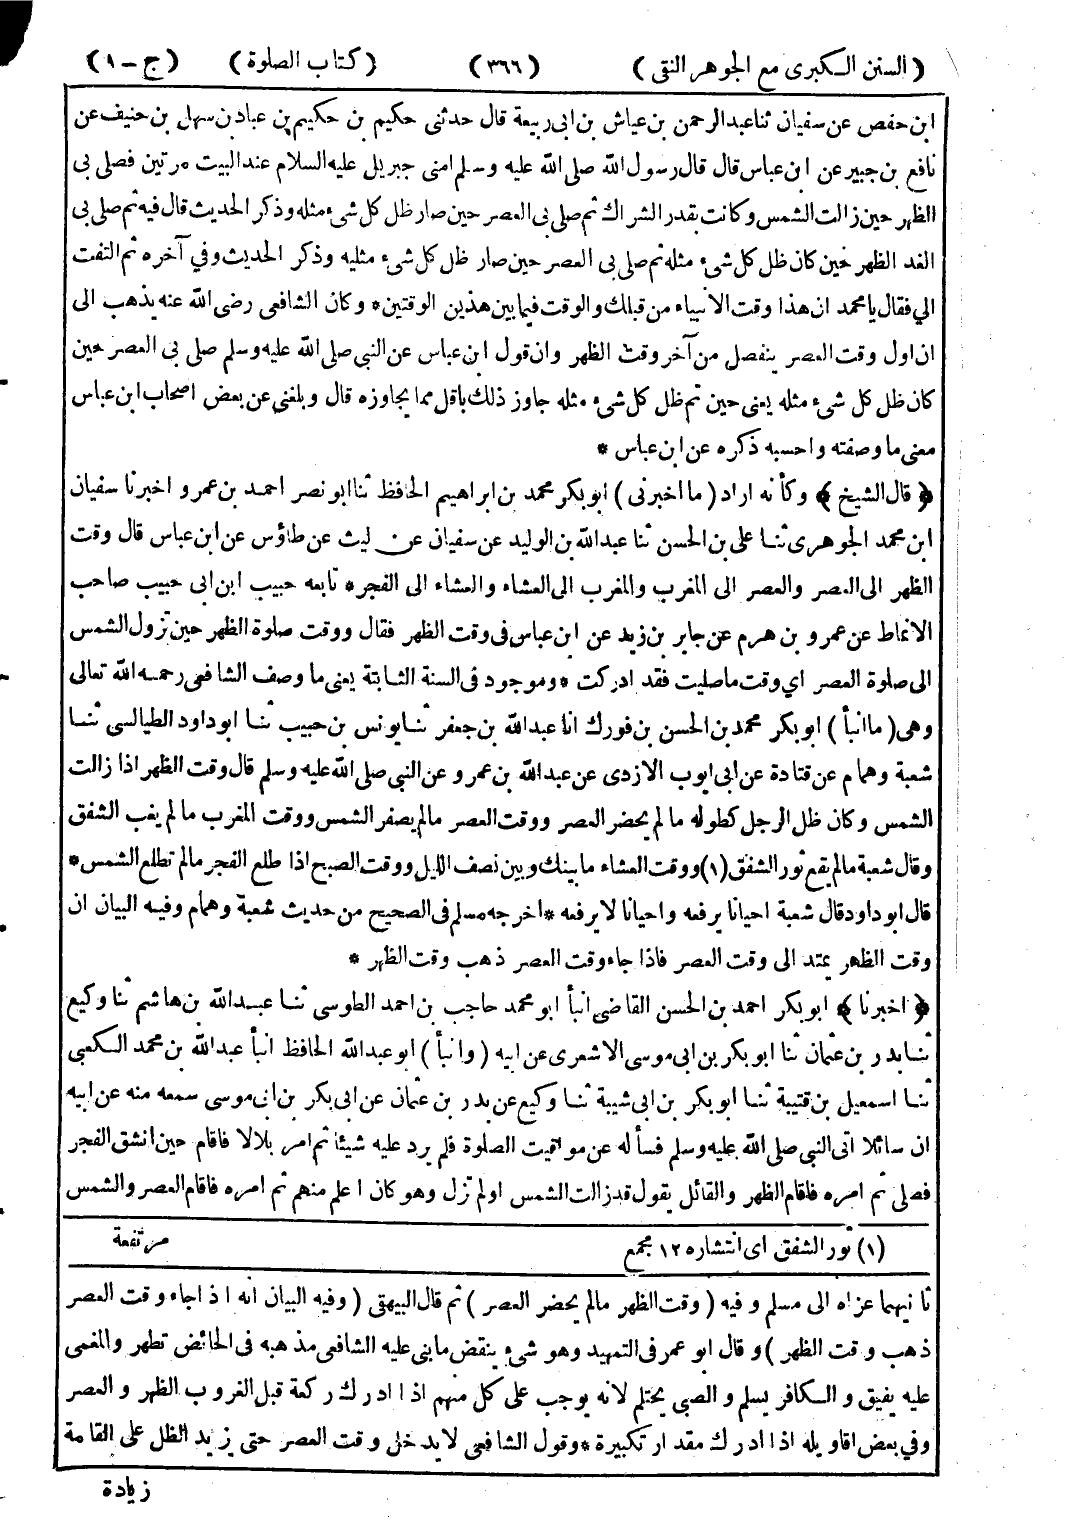 ( السنن الكبرى مع الجوهر النقى ) ( ٣٦٦ ) ( كتاب الصلوة ) ( ج - ١ )
ابن حفص عن سفيان ثنا عبد الرحمن بن عياش بن ابى ربيعة قال حدثنى حكيم بن حكيم بن عباد بن سهل بن حنيف عن
نافع بن جبير عن ابن عباس قال قال رسول الله صلى الله عليه وسلم امنى جبريل عليه السلام عند البيت مرتين فصلى بى
الظهر حين زالت الشمس وكانت بقدر الشراك ثم صلى بى العصر حين صار ظل كل شىء مثله وذكر الحديث قال فيه ثم صلى بى
الغد الظهر حين كان ظل كل شىء مثله ثم صلى بى العصر حين صار ظل كل شىء مثليه وذكر الحديث وفي آخره ثم التفت
الي فقال يا محمد ان هذا وقت الانبياء من قبلك والوقت فيما بين هذين الوقتين * وكان الشافعى رضى الله عنه يذهب الى
ان اول وقت العصر ينفصل من آخر وقت الظهر وان قول ابن عباس عن النبي صلى الله عليه وسلم صلى بى العصر حين
كان ظل كل شىء مثله يعنى حين تم ظل كل شىء مثله جاوز ذلك باقل مما يجاوزه قال وبلغنى عن بعض اصحاب ابن عباس
معنى ما وصفته واحسبه ذكره عن ابن عباس *
﴿ قال الشيخ ﴾ وكأنه اراد ( ما اخبرنى ) ابو بكر محمد بن ابراهيم الحافظ ثنا ابو نصر احمد بن عمرو اخبرنا سفيان
ابن محمد الجوهرى ثنا على بن الحسن ثنا عبد الله بن الوليد عن سفيان عن ليث عن طاؤس عن ابن عباس قال وقت
الظهر الى العصر والعصر الى المغرب والمغرب الى العشاء والعشاء الى الفجر * تابعه حبيب ابن ابى حبيب صاحب
الانماط عن عمرو بن هرم عن جابر بن زيد عن ابن عباس فى وقت الظهر فقال ووقت صلوة الظهر حين تزول الشمس
الى صلوة العصر اي وقت ما صليت فقد ادركت * وموجود فى السنة الثابتة يعنى ما وصف الشافعى رحمه الله تعالى
وهى ( ما انبأ ) ابو بكر محمد بن الحسن بن فورك انا عبد الله بن جعفر ثنا يونس بن حبيب ثنا ابو داود الطيالسى ثنا
شعبة وهمام عن قتادة عن ابى ايوب الازدى عن عبد الله بن عمرو عن النبى صلى الله عليه وسلم قال وقت الظهر اذا زالت
الشمس وكان ظل الرجل كطوله ما لم يحضر العصر ووقت العصر ما لم يصفر الشمس ووقت المغرب ما لم يغب الشفق
وقال شعبة ما لم يقع ثور الشفق (١) ووقت العشاء ما بينك وبين نصف الليل ووقت الصبح اذا طلع الفجر ما لم تطلع الشمس *
قال ابو داود قال شعبة احيانا يرفعه واحيانا لا يرفعه * اخرجه مسلم فى الصحيح من حديث شعبة وهمام وفيه البيان ان
وقت الظهر يمتد الى وقت العصر فاذا جاء وقت العصر ذهب وقت الظهر *
﴿ اخبرنا ﴾ ابو بكر احمد بن الحسن القاضى انبأ ابو محمد حاجب بن احمد الطوسى ثنا عبد الله بن هاشم ثنا وكيع
ثنا بدر بن عثمان ثنا ابو بكر بن ابى موسى الاشعرى عن ابيه ( وانبأ ) ابو عبد الله الحافظ انبأ عبد الله بن محمد الكعبى
ثنا اسمعيل بن قتيبة ثنا ابو بكر بن ابى شيبة ثنا وكيع عن بدر بن عثمان عن ابى بكر بن ابى موسى سمعه منه عن ابيه
ان سائلا اتى النبى صلى الله عليه وسلم فسأله عن مواقيت الصلوة فلم يرد عليه شيئا ثم امر بلالا فاقام حين انشق الفجر
فصلى ثم امره فاقام الظهر والقائل يقول قد زالت الشمس اولم تزل وهو كان اعلم منهم ثم امره فاقام العصر والشمس
مرتفعة
(١) ثور الشفق اى انتشاره ١٢ مجمع
ثانيهما عزاه الى مسلم وفيه ( وقت الظهر ما لم يحضر العصر ) ثم قال البيهقى ( وفيه البيان انه اذا جاء وقت العصر
ذهب وقت الظهر ) وقال ابو عمر فى التمهيد وهو شىء ينقض ما بنى عليه الشافعى مذهبه فى الحائض تطهر والمغمى
عليه يفيق والكافر يسلم والصبى يحتلم لانه يوجب على كل منهم اذا ادرك ركعة قبل الغروب الظهر والعصر
وفي بعض اقاويله اذا ادرك مقدار تكبيرة * وقول الشافعى لا يدخل وقت العصر حتى يزيد الظل على القامة
زيادة